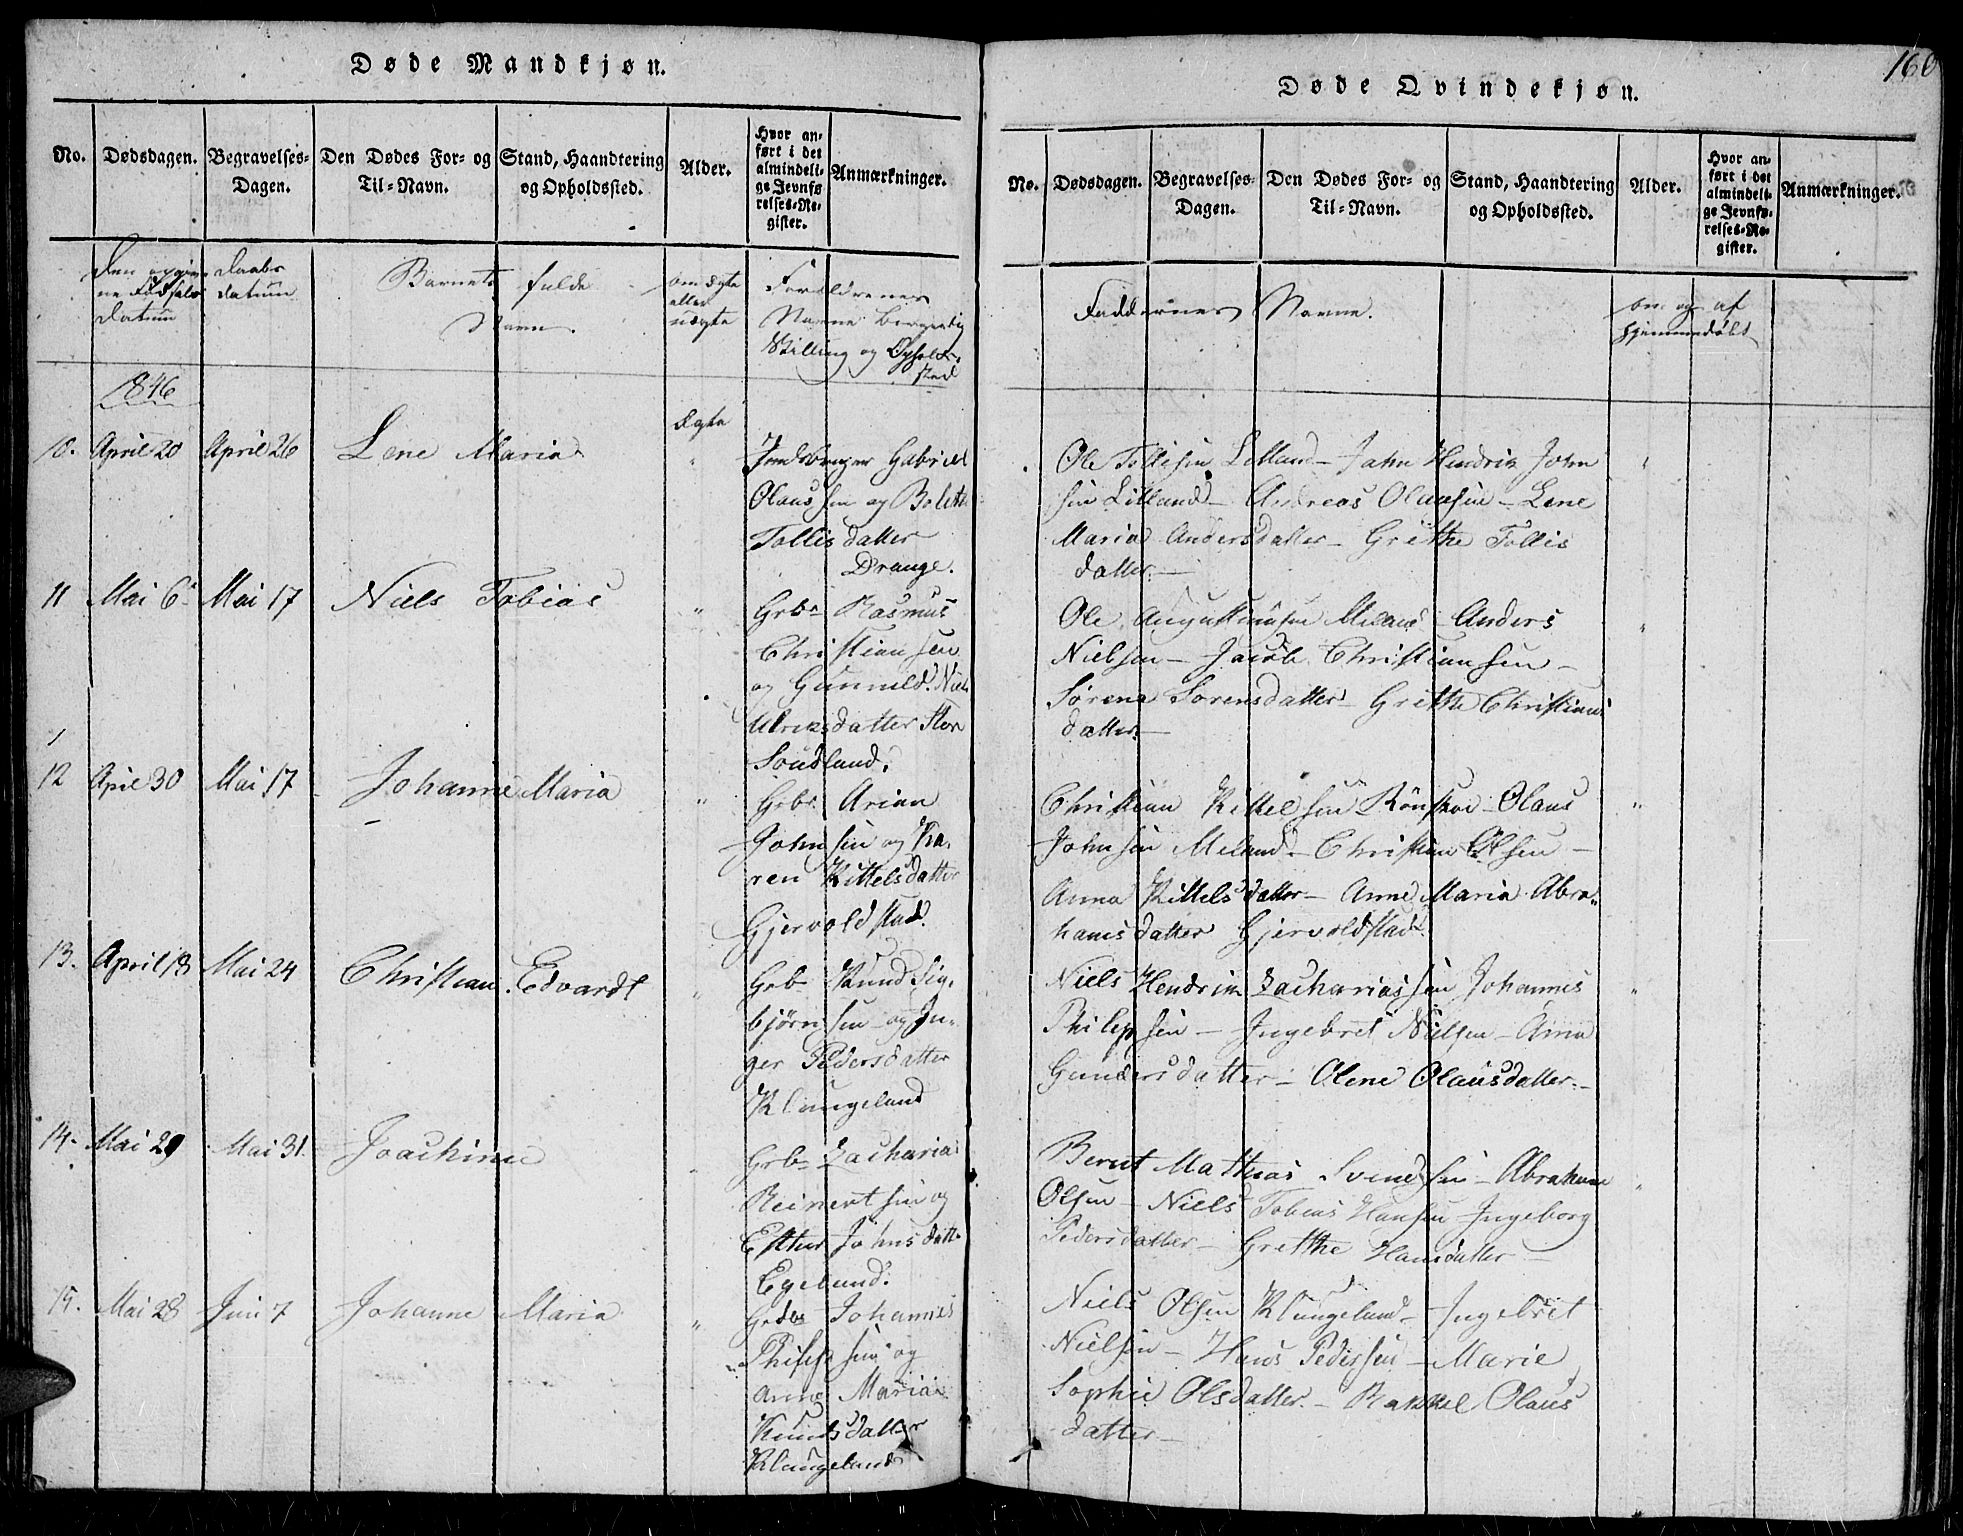 Døde Mandkjøn.
No. Dødsdagen. Begravelses-Dagen. Den Dødes For- og Til-Navn. Stand, Haandtering og Opholdssted. Alder. Hvor anført i det almindelige Jevnførelses-Register. Anmærkninger.
Den opgivne Fødsels datum
Daabs datum
Barnets fulde Navn.
om ægte eller uægte
Forældrenes Navne Borgerlig Stilling og Opholdssted
1846
10. April 20 April 26 Lene Maria ægte
Gabriel
Olaussen og Bolette
Tollisdatter
Drange.
11 Mai 6 Mai 17 Niels Tobias "
Grbr Rasmus
Christiansen
og Gunnild Niels
Ulriksdatter Stor
Soudland.
12 Apil 30 Mai 17 Johanne Maria "
Grbr. Arian
Johnsen og Ka-
ren Kittelsdatter
Gjervoldstad.
13. April 18 Mai 24 Christian Edvardt "
Grb Knud Sig-
bjørnsen og In-
ger Pedersdatter
Klungeland
14. Mai 29 Mai 31. Joachime
Grb Zacharia
Reinertsen og
Ester Johnsdatt
Egeland.
15. Mai 28 Juni 7 Johanne Maria "
Johannes
Philipsen og
Anne Maria
Knudsdatter
Klungeland
160
Døde Qvindekjøn.
No. Dødsdagen. Begravelses-Dagen. Den Dødes For- og Til-Navn. Stand, Haandtering og Opholdssted. Alder. Hvor anført i det almindelige Jevnførelses-Register. Anmærkninger.
Faddernes Navne.
om og af
hjemmedøbt
Ole Tollisen Lilland - John Hendrik John
sen Lilland - Andreas Olausen - Lene
Maria Andersdatter - Grethe Tollis
datter. -
Ole Augustinusen Meland - Anders
Nielsen - Jacob Christiansen -
Sørene Sørensdatter - Grethe Christians
datter. -
Christian Kittelsen - Olaus
Johnsen Meland - Christian Olsen -
Anna Kittelsdatter - Anne Maria Abra-
hamsdatter Gjervoldstad.
Niels Hendrik Zachariassen Johannes
Philipsen - Ingebret Nielsen - Anna
Gundersdatter - Olene Olausdatter. -
Bernt Mathias Svendsen - Abraham
Olsen - Niels Tobias Hansen - Ingeborg
Pedersdatter - Grethe Hansdatter -
Niels Olsen Klungeland - Ingebret
Nielsen - Hans Pedersen - Marie
Sophie Olsdatter. - Rakkel Olaus
datter -